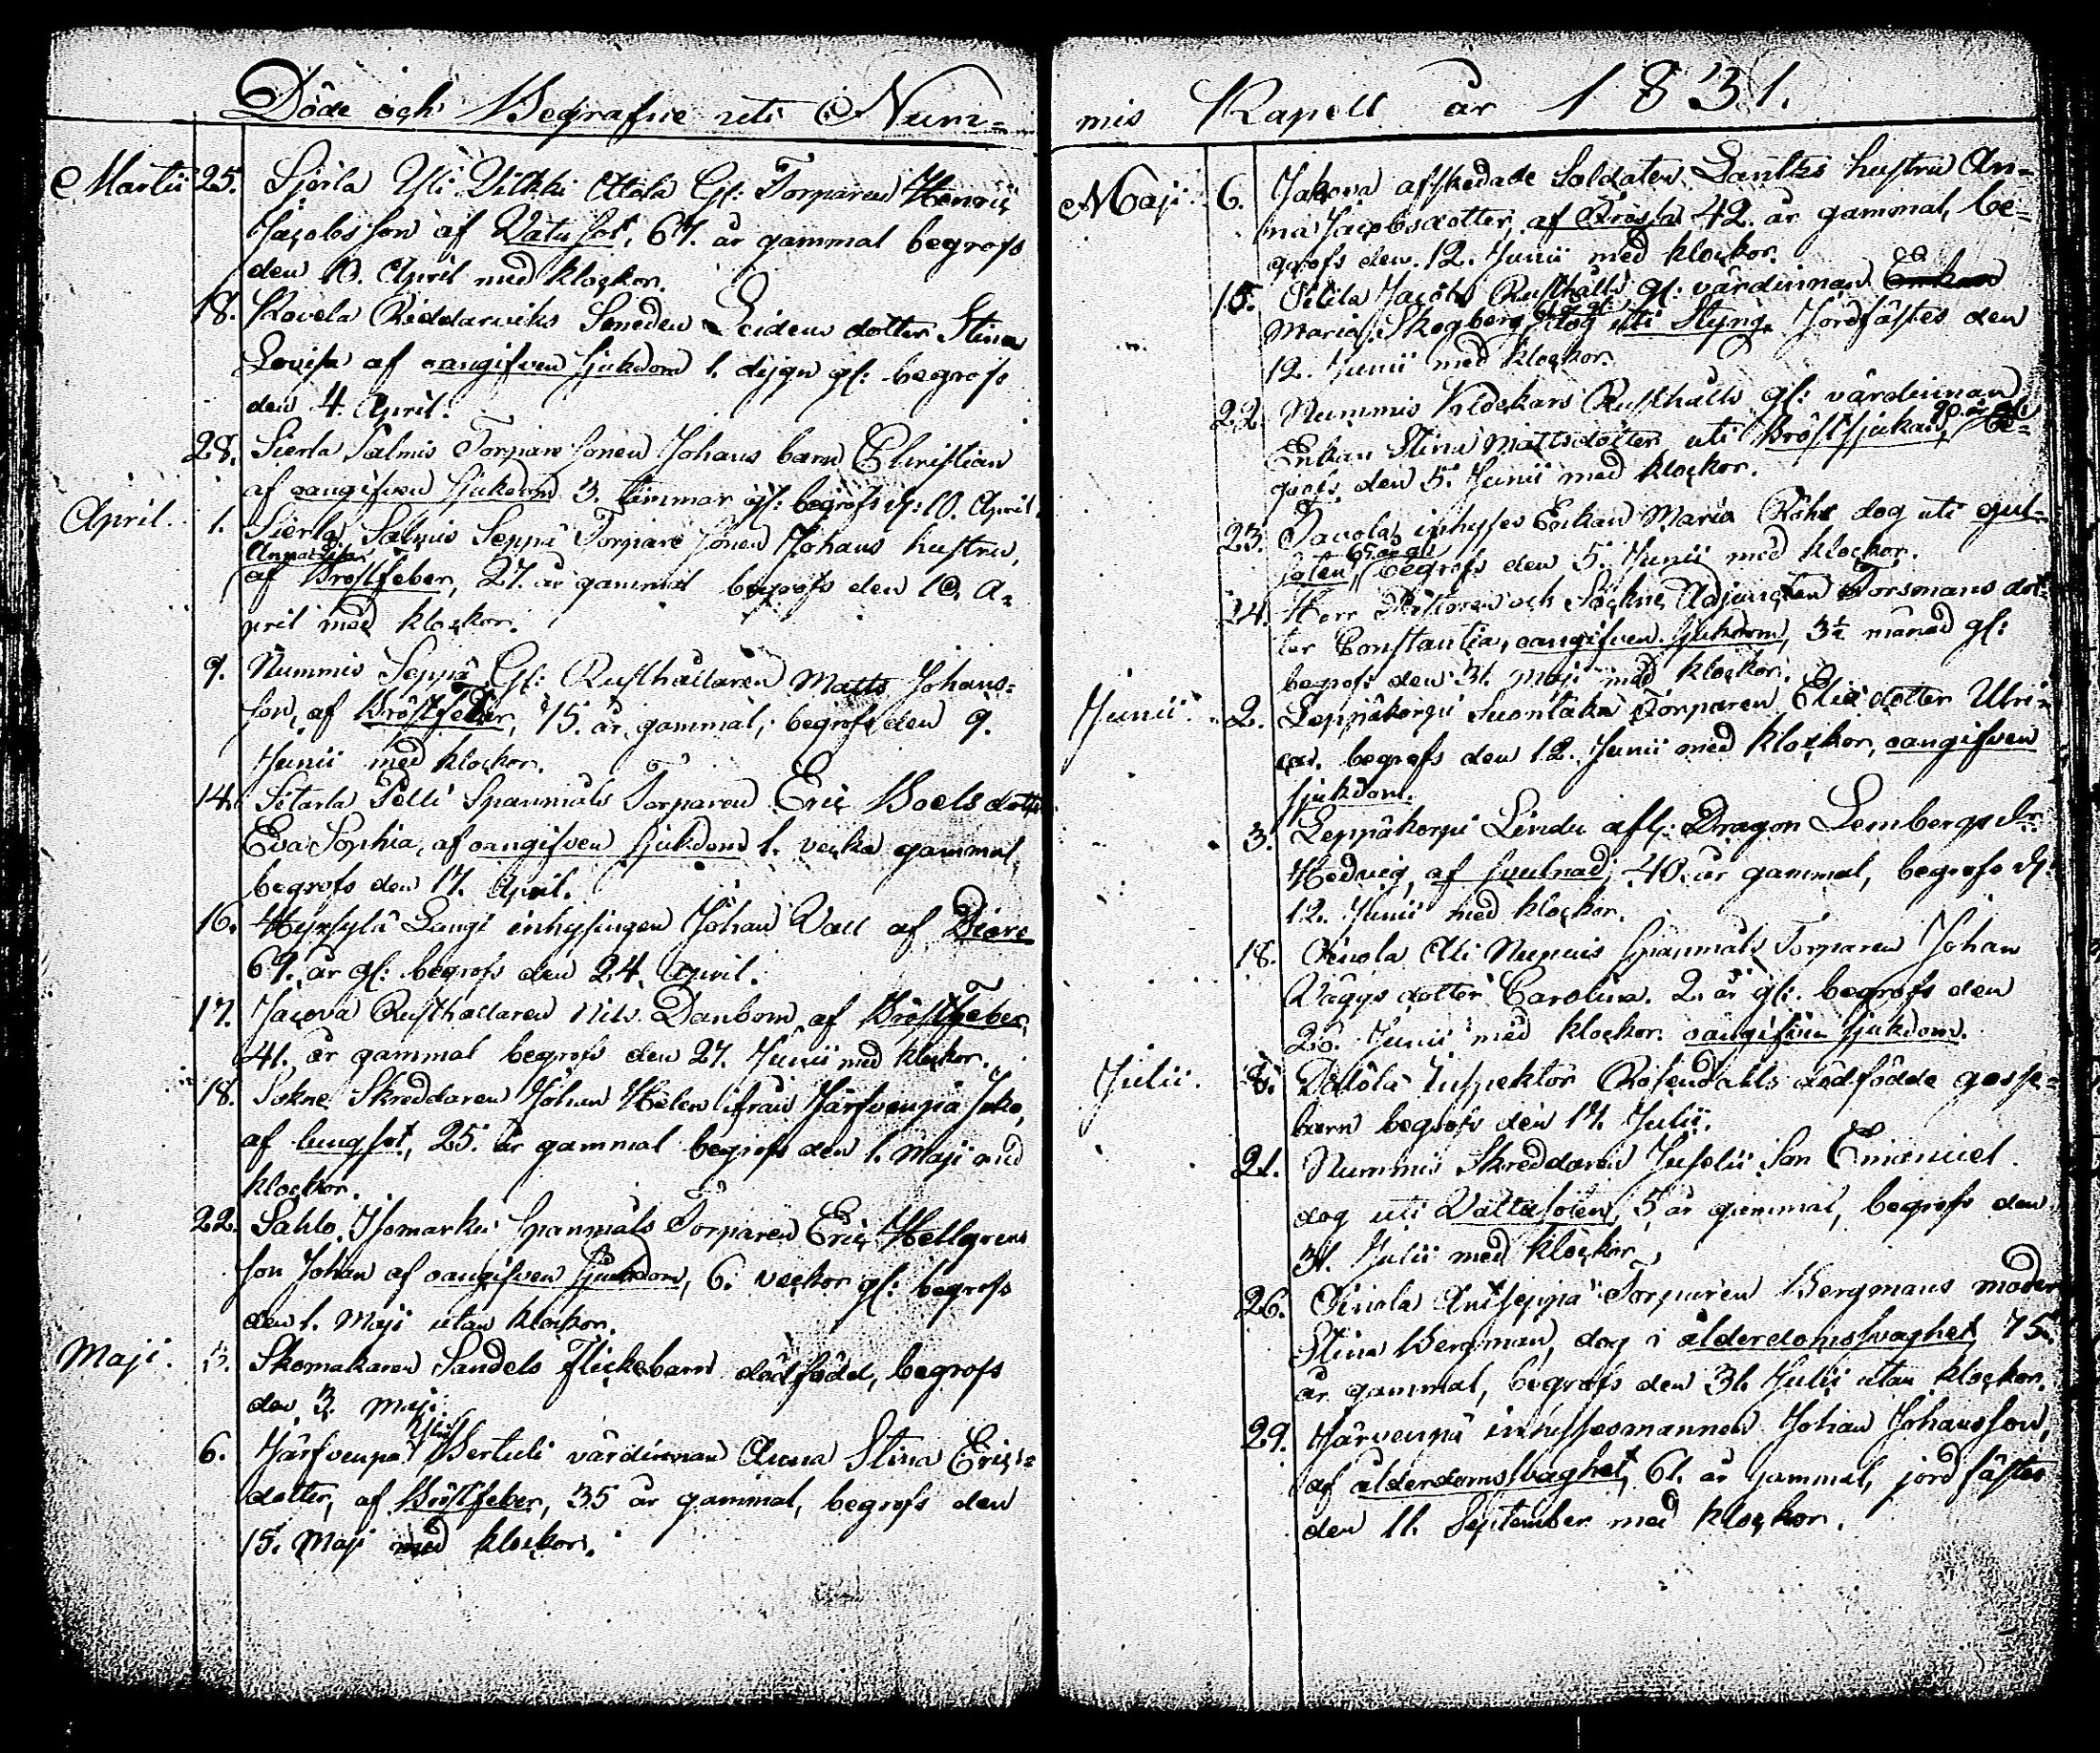 Döde och Begrafne uti Num-
Martii 25. Sjerla Yli Vilkki Attala Gl: Torparen Henric
Jacobsson af Vatusot, 67. år gammal begrofs
den 10. April med klockor.
18. Kovela Riddarwiks Smeden Leidens dotter Stina
Lovisa af oangifven sjukdom 1. dygn gl: begrofs
den 4. April.
28. Sierla Salmis Torpare sonen Johans barn Christian
af oangifven sjukdom 3. timmar gl: begrofs d: 10. April.
April. 1. Sierla Salmis Seppä Torpare sonen Johans hustru,
Anna
af Bröstfeber, 27. år gammal begrofs den 10. A-
pril med klockor.
9. Nummis Seppä Gl: Rusthållaren Matts Johans-
son, af Bröstfeber, 75. år gammal, begrofs den 9.
Junii med klockor.
14. Sitarla Pelli Spanmåls Torparen Eric Boels dotter
Eva Sophia, af oangifven sjukdom 1. vecka gammal,
begrofs den 17. April.
16. Hyrsylä Langi inhysingen Johan Vall af Diare
69. år gl: begrofs den 24. April.
17. Jacova Rusthållaren Nils Danbom, af Bröstfeber,
41. år gammal begrofs den 27. Junii med klockor.
18. Sokne Skreddaren Johan Helen ifrån Järfvenpä
af lungsot, 25. år gammal begrofs den 1. Maji med
klockor.
22. Sahlo. Isomarku Spanmåls Torparen Eric Hellgrens
son Johan af oangifven sjukdom, 6. veckor gl: begrofs
den 1. Maji utan klockor.
Maji. 3. Skomakaren Sandels Flickebarn dödfödd, begrofs
den 3. Maji.
6. Järfvenpä Bertuli värdinnan Anna Stina Erics-
dotter, af Bröstfeber, 35 år gammal, begrofs den
15. Maji med klockor.
mis Kapell år 1831.
Maji. 6. Jakova afskedade Soldaten Lantks hustru An-
na Jacobsdotter, af Rossla 42. år gammal, be-
grofs den 12. Junii med klockor.
15. Sitila Jacobs Rusthålls gl: värdinnan Enkan
Maria Skogberg dog uti Styng. Jordfästes den
12. Junii med klockor.
22. Nummis Klockars Rusthålls gl: värdinnan
Enkan Stina Mattsdotter uti Bröstsjukan, be-
grofs den 5. Junii med klockor.
23. inhyses Enkan Maria dog uti gul-
soten, begrofs den 5. Junii med klockor.
24. Herr Pastoren och Sockne Adjuncten Forsmans dot-
ter Constantia, oangifven sjukdom, 3½ månad gl:
begrofs den 31. Maji med klockor.
Junii. 2. Leppäkorpi Suontaka Torparen Elia dotter Ulri-
ca. begrofs den 12. Junii med klockor, oangifven
sjukdom.
3. Leppäkorpi Lindu afsk: Dragon Lembergs
Hedvig, af svulnad, 40. år gammal, begrofs d:
12. Junii med klockor.
18. Oinola Ali Nupuis Spanmåls Torparen Johan
Väggs dotter Carolina. 2. år gl: begrofs den
26. Junii med klockor. oangifven sjukdom.
Julii. 8. Inspektor Rosendahls dödfödde gosse-
barn begrofs den 17. Julii.
21. Nummis Skreddaren Juselii Son Emanuel
dog uti Vattusoten, 5 år gammal, begrofs den
31. Julii med klockor.
26. Oinola Antseppä Torparen Bergmans moder
Stina Bergman, dog i ålderdomssvaghet, 75.
år gammal, begrofs den 31. Julii utan klockor.
29. Järvenpä inhysesmannen Johan Johansson,
af ålderdomssvaghet, 61. år gammal, jordfästes
den 11. September med klockor.